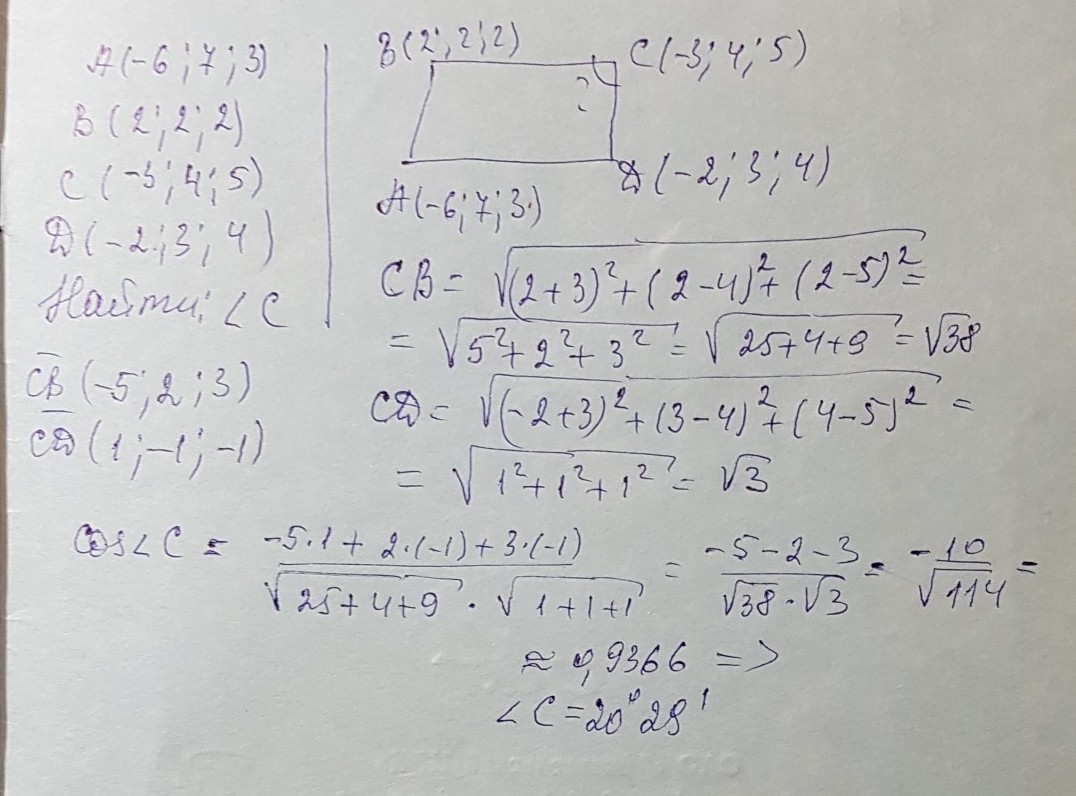 A(-6;7;3)
B(2;2;2)
C(-3;4;5)
D(-2;3;4)
Найти: ∠C
CB(-5;2;3)
CD(1;-1;-1)
B(2;2;2)
C(-3;4;5)
?
A(-6;7;3)
D(-2;3;4)
CB = √(2+3)²+(2-4)²+(2-5)² =
= √5²+2²+3² = √25+4+9 = √38
CD = √(-2+3)²+(3-4)²+(4-5)² =
= √1²+1²+1² = √3
cos∠C = (-5·1+2·(-1)+3·(-1))/(√25+4+9 · √1+1+1) = (-5-2-3)/(√38·√3) = -10/√114 =
≈ 0,9366 =>
∠C = 20°29'